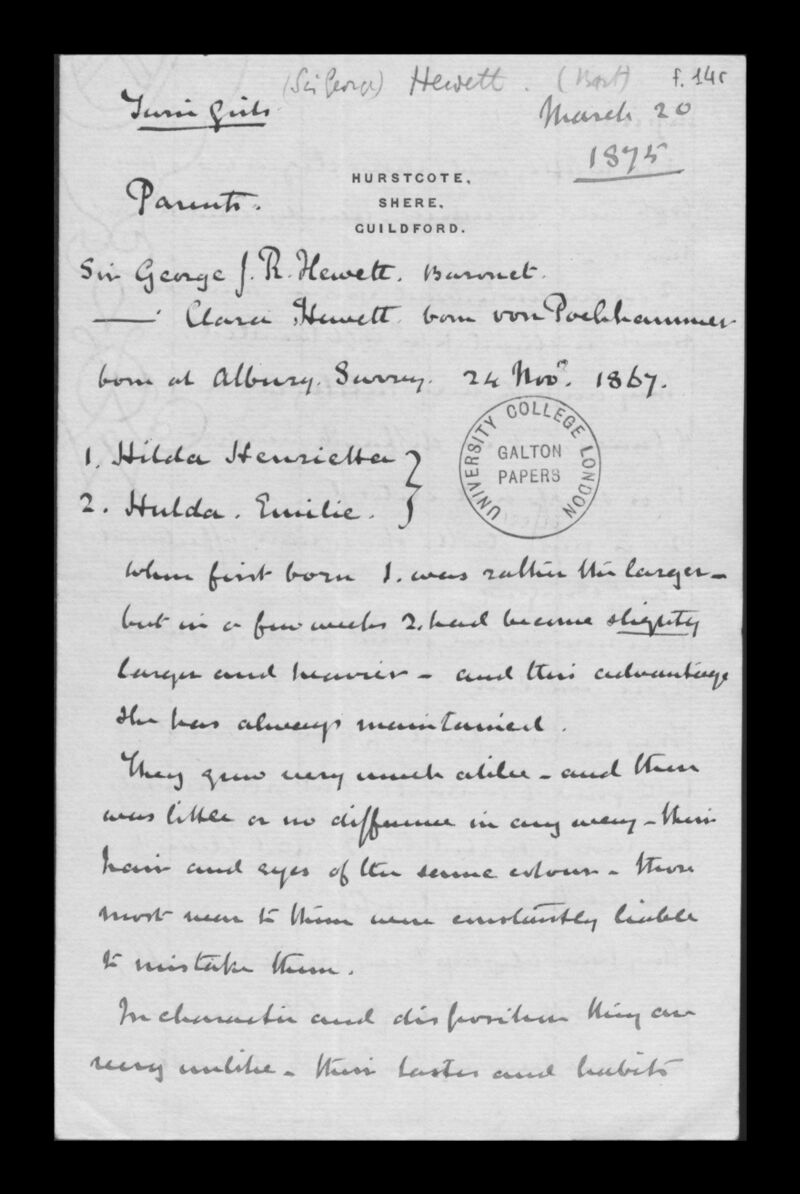 (Sir George) Hewett. (Bart) f. 14r
Twin Girls
March 20
1875
HURSTCOTE,
SHERE,
GUILDFORD.
Parents.
Sir George J. R. Hewett. Baronet.
—— Clara Hewett. born von Pochhammer
born at Albury. Surrey. 24 Novr. 1867.
1. Hilda Henrietta }
2. Hulda. Emilie. }
UNIVERSITY COLLEGE LONDON
GALTON
PAPERS
When first born 1. was rather the larger –
but in a few weeks 2. had become slightly
larger and heavier – and this advantage
she has always maintained.
They grew very much alike – and there
was little or no difference in any way – their
hair and eyes of the same colour – those
most near to them were constantly liable
to mistake them.
In character and disposition they are
very unlike – their tastes and habits